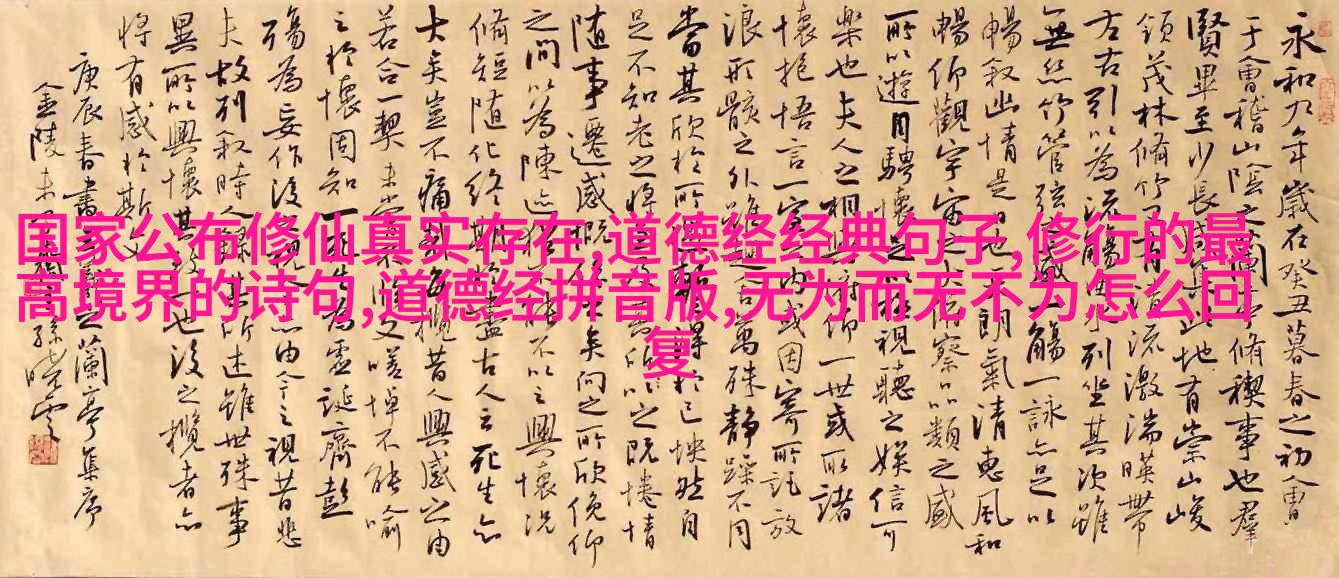 国家公布修仙真实存在,道德经经典句子,修行的最
高境界的诗句,道德经拼音版,无为而无不为怎么回
复
永和九年歲在癸丑暮春之初會
于會稽山陰之蘭亭脩禊事也羣
賢畢至少長咸集此地有崇山峻
領茂林脩竹又有清流激湍暎帶
左右引以為流觴曲水列坐其次雖
無絲竹管弦之盛一觴一詠亦足以
暢叙幽情是日也天朗氣清惠風和
暢仰觀宇宙之大俯察品類之盛
所以遊目騁懷足以極視聽之娛信可
樂也夫人之相與俯仰一世或取諸
懷抱悟言一室之内或因寄所託放
浪形骸之外雖趣舍萬殊靜躁不同
當其欣於所遇暫得於己怏然自
足不知老之將至及其所之既惓情
随事遷感慨係之矣向之所欣俛仰
之間以為陳迹猶不能不以之興懷況
脩短随化終期於盡古人云死生亦
大矣豈不痛哉每攬昔人興感之由
若合一契未嘗不臨文嗟悼不能喻
之於懷固知一死生為虛誕齊彭
殤為妄作後之視今亦由今之視昔悲
夫故列叙時人録其所述雖世殊事
異所以興懷其致一也後之攬者亦
將有感於斯文
庚辰春書之蘭亭集序
金陵孫曉雲